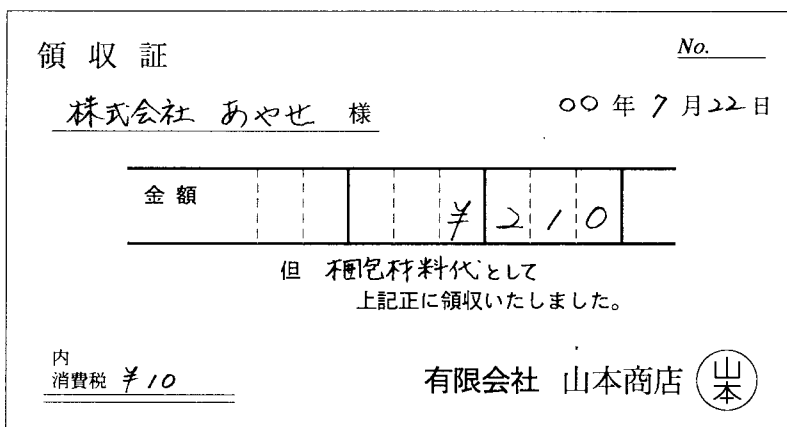 領収証
No.
株式会社 あやせ 様
00年7月22日
金額 ¥210
但 梱包材料代として
上記正に領収いたしました。
内
消費税 ¥10
有限会社 山本商店 山本